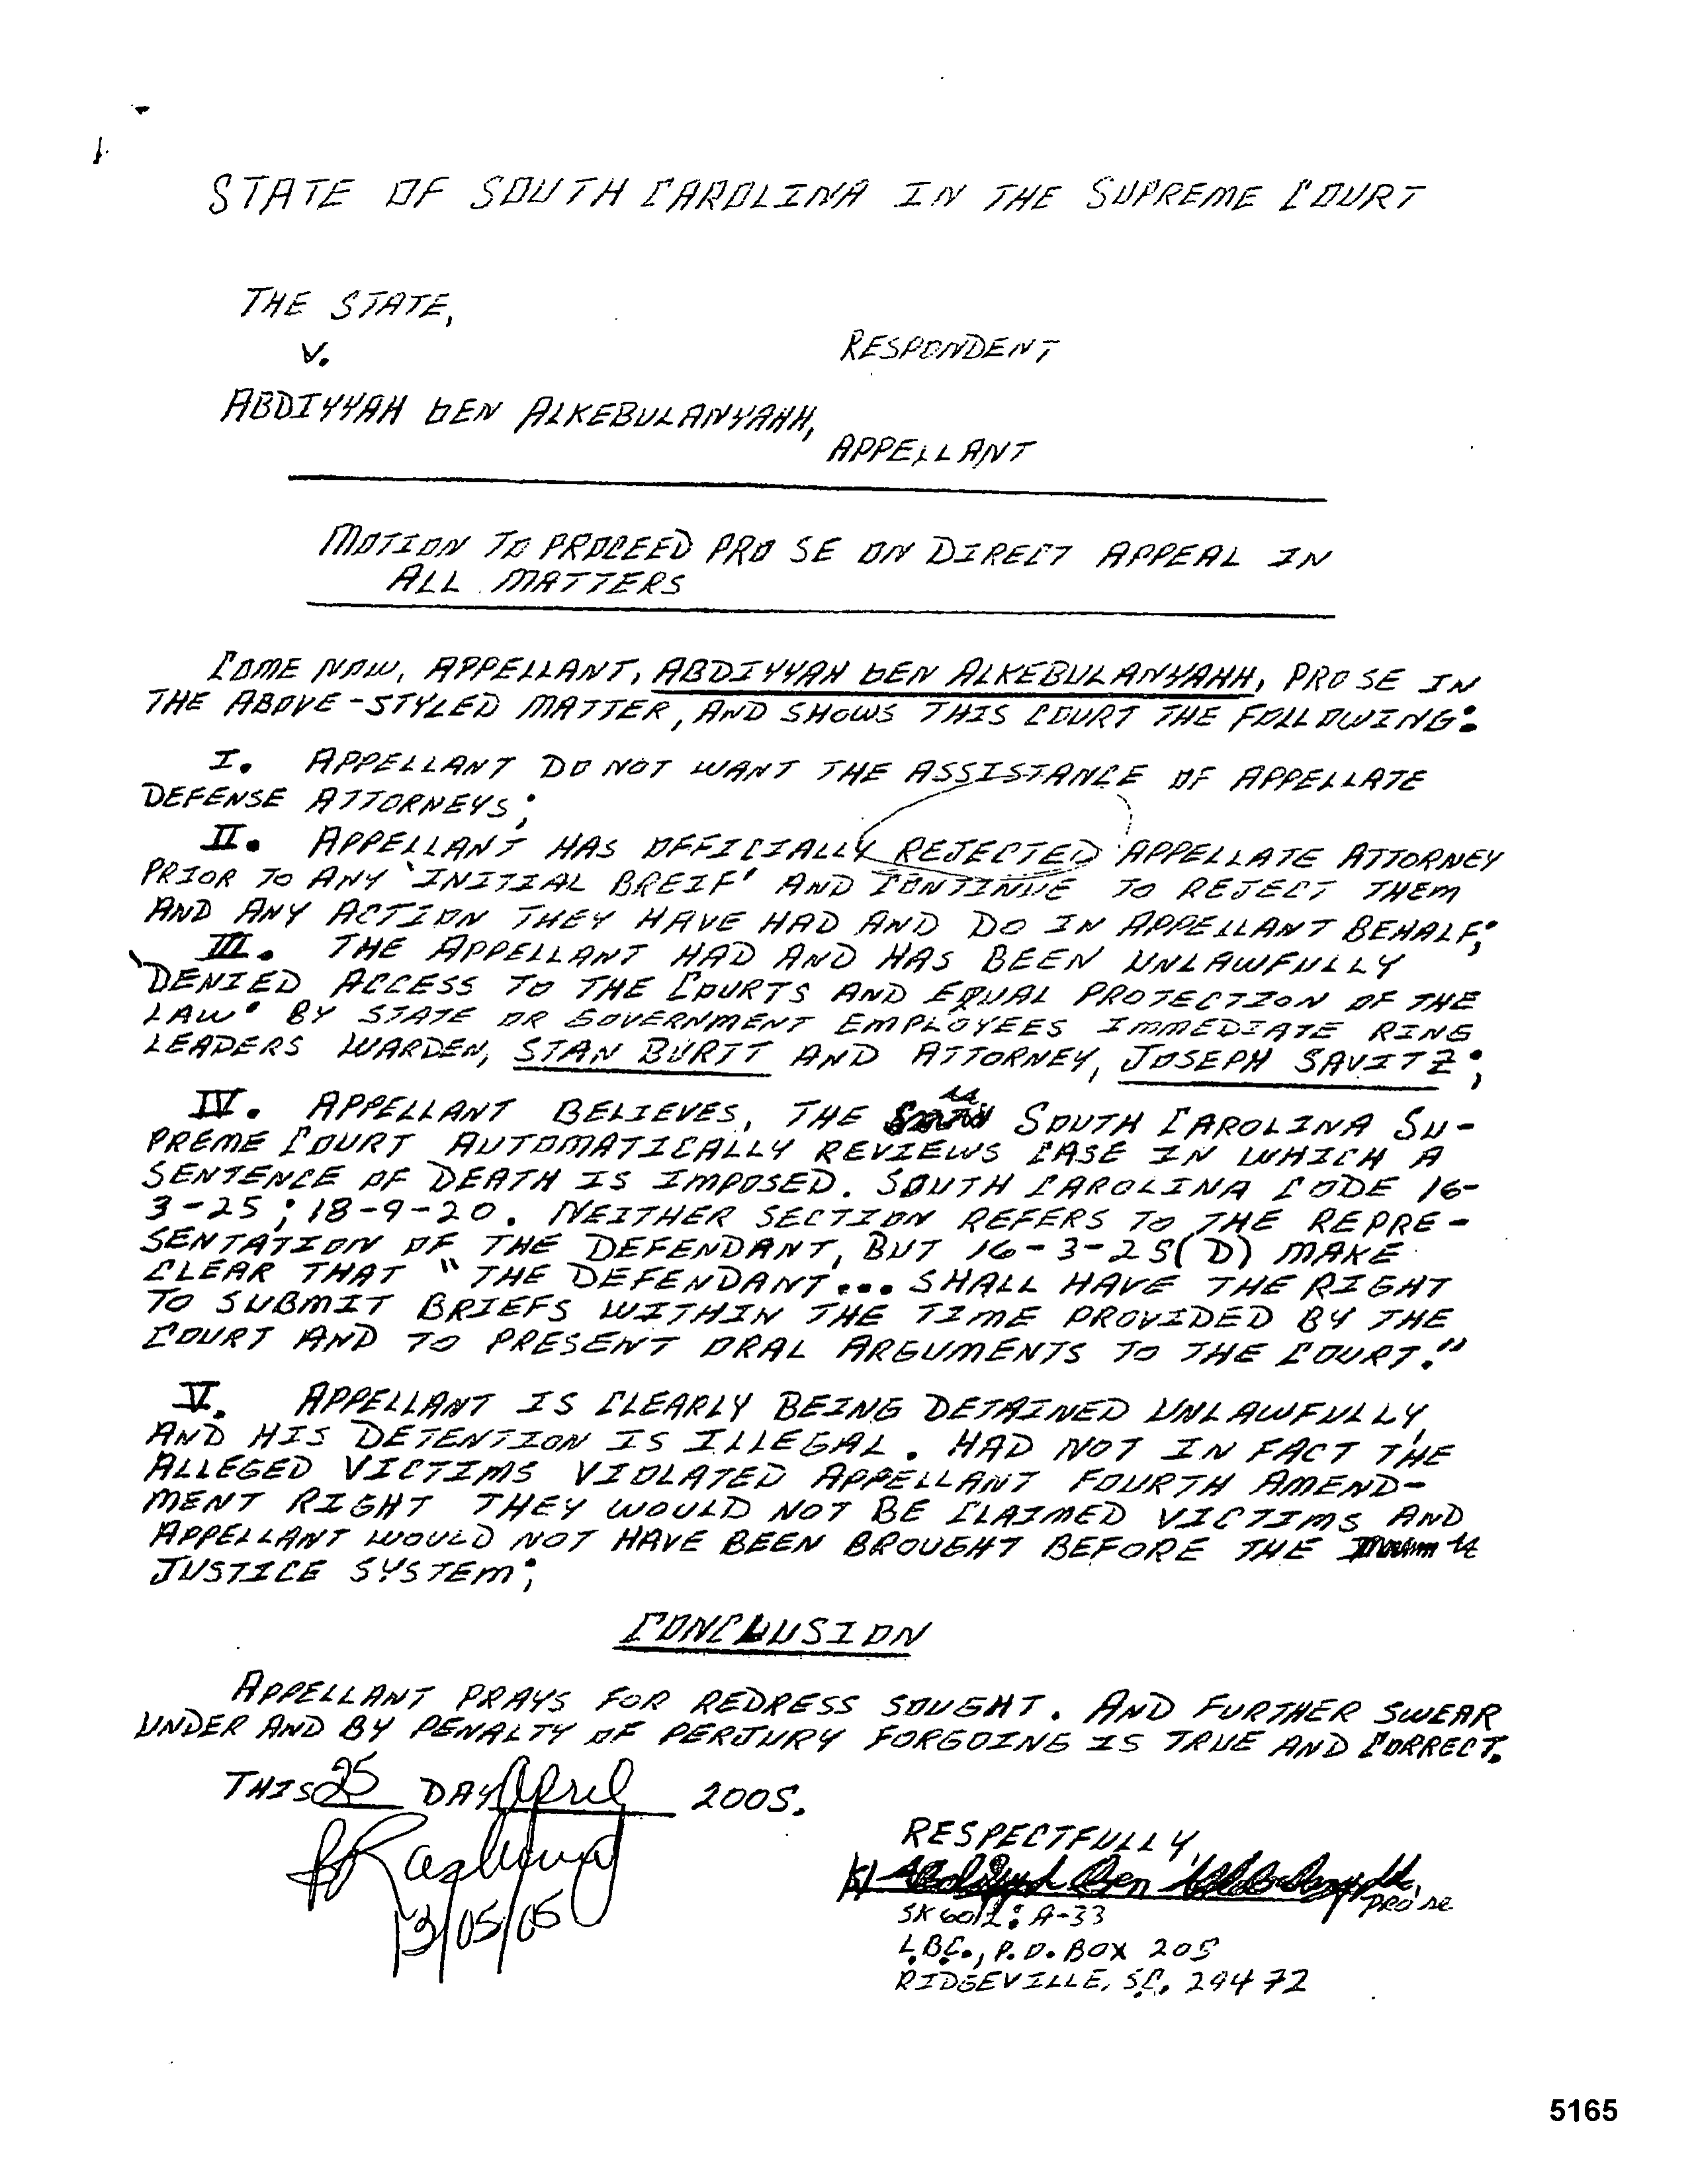 STATE OF SOUTH CAROLINA IN THE SUPREME COURT
THE STATE,
V. RESPONDENT
ABDIYYAH bEN ALKEBULANYAHH,
APPELLANT
MOTION TO PROCEED PRO SE ON DIRECT APPEAL IN
ALL MATTERS
COME NOW, APPELLANT, ABDIYYAH bEN ALKEBULANYAHH, PRO SE IN
THE ABOVE-STYLED MATTER, AND SHOWS THIS COURT THE FOLLOWING:
I. APPELLANT DO NOT WANT THE ASSISTANCE OF APPELLATE
DEFENSE ATTORNEYS;
II. APPELLANT HAS OFFICIALLY REJECTED APPELLATE ATTORNEY
PRIOR TO ANY 'INITIAL BREIF' AND CONTINUE TO REJECT THEM
AND ANY ACTION THEY HAVE HAD AND DO IN APPELLANT BEHALF;
III. THE APPELLANT HAD AND HAS BEEN UNLAWFULLY
'DENIED ACCESS TO THE COURTS AND EQUAL PROTECTION OF THE
LAW' BY STATE OR GOVERNMENT EMPLOYEES IMMEDIATE RING
LEADERS WARDEN, STAN BURTT AND ATTORNEY, JOSEPH SAVITZ;
IV. APPELLANT BELIEVES, THE SOUTH CAROLINA SU-
PREME COURT AUTOMATICALLY REVIEWS CASE IN WHICH A
SENTENCE OF DEATH IS IMPOSED. SOUTH CAROLINA CODE 16-
3-25; 18-9-20. NEITHER SECTION REFERS TO THE REPRE-
SENTATION OF THE DEFENDANT, BUT 16-3-25(D) MAKE
CLEAR THAT "THE DEFENDANT... SHALL HAVE THE RIGHT
TO SUBMIT BRIEFS WITHIN THE TIME PROVIDED BY THE
COURT AND TO PRESENT ORAL ARGUMENTS TO THE COURT."
V. APPELLANT IS CLEARLY BEING DETAINED UNLAWFULLY,
AND HIS DETENTION IS ILLEGAL. HAD NOT IN FACT THE
ALLEGED VICTIMS VIOLATED APPELLANT FOURTH AMEND-
MENT RIGHT THEY WOULD NOT BE CLAIMED VICTIMS AND
APPELLANT WOULD NOT HAVE BEEN BROUGHT BEFORE THE
JUSTICE SYSTEM;
CONCLUSION
APPELLANT PRAYS FOR REDRESS SOUGHT. AND FURTHER SWEAR
UNDER AND BY PENALTY OF PERJURY FORGOING IS TRUE AND CORRECT.
THIS 25 DAY April 2005.
RESPECTFULLY,
PRO se
SK6012; A-33
L.B.C., P.O. BOX 205
RIDGEVILLE, S.C. 29472
5165